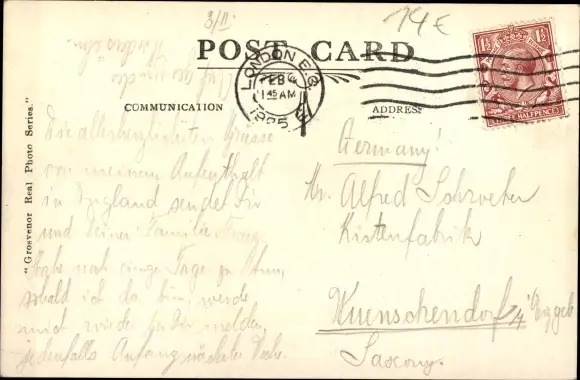 3/II.
14 €
POST CARD
LONDON E.C.
FEB
1 45 AM
1925
COMMUNICATION
ADDRESS
HALFPENCE
"Grosvenor Real Photo Series."
Die allerherzlichsten Grüsse
von meinem Aufenthalt
in England sendet Dir
und Deiner Familie
Habe noch einige Tage zu tun,
sobald ich da bin, werde
mich wieder melden,
jedenfalls Anfang nächster Woche.
Germany!
Mr. Alfred Schroeter
Kistenfabrik
Kuenschendorf
Saxony.